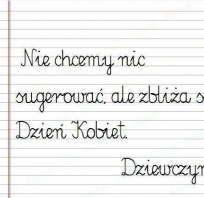 Nie chcemy nic
sugerować, ale zbliża s
Dzień Kobiet.
Dziewczyn